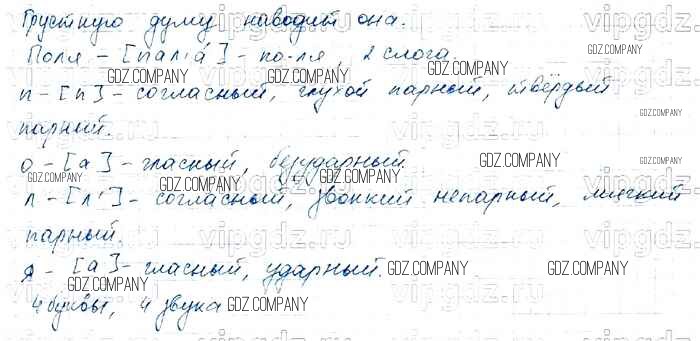 Грустную думу наводит она.
Поля – [пал'а́] – по-ля, 2 слога.
п – [п] – согласный, глухой парный, твёрдый
парный.
о – [а] – гласный, безударный.
л – [л'] – согласный, звонкий непарный, мягкий
парный.
я – [а] – гласный, ударный.
4 буквы, 4 звука